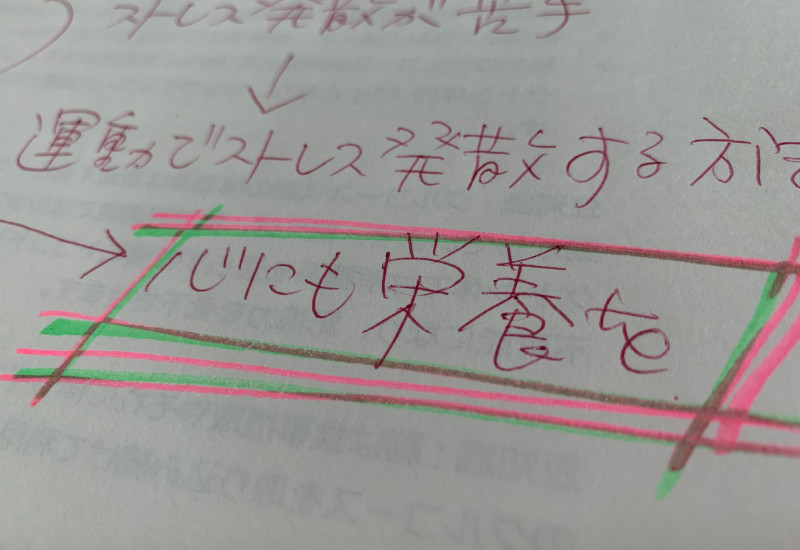 ストレス発散が苦手
↓
運動でストレス発散する方
→ 心にも栄養を